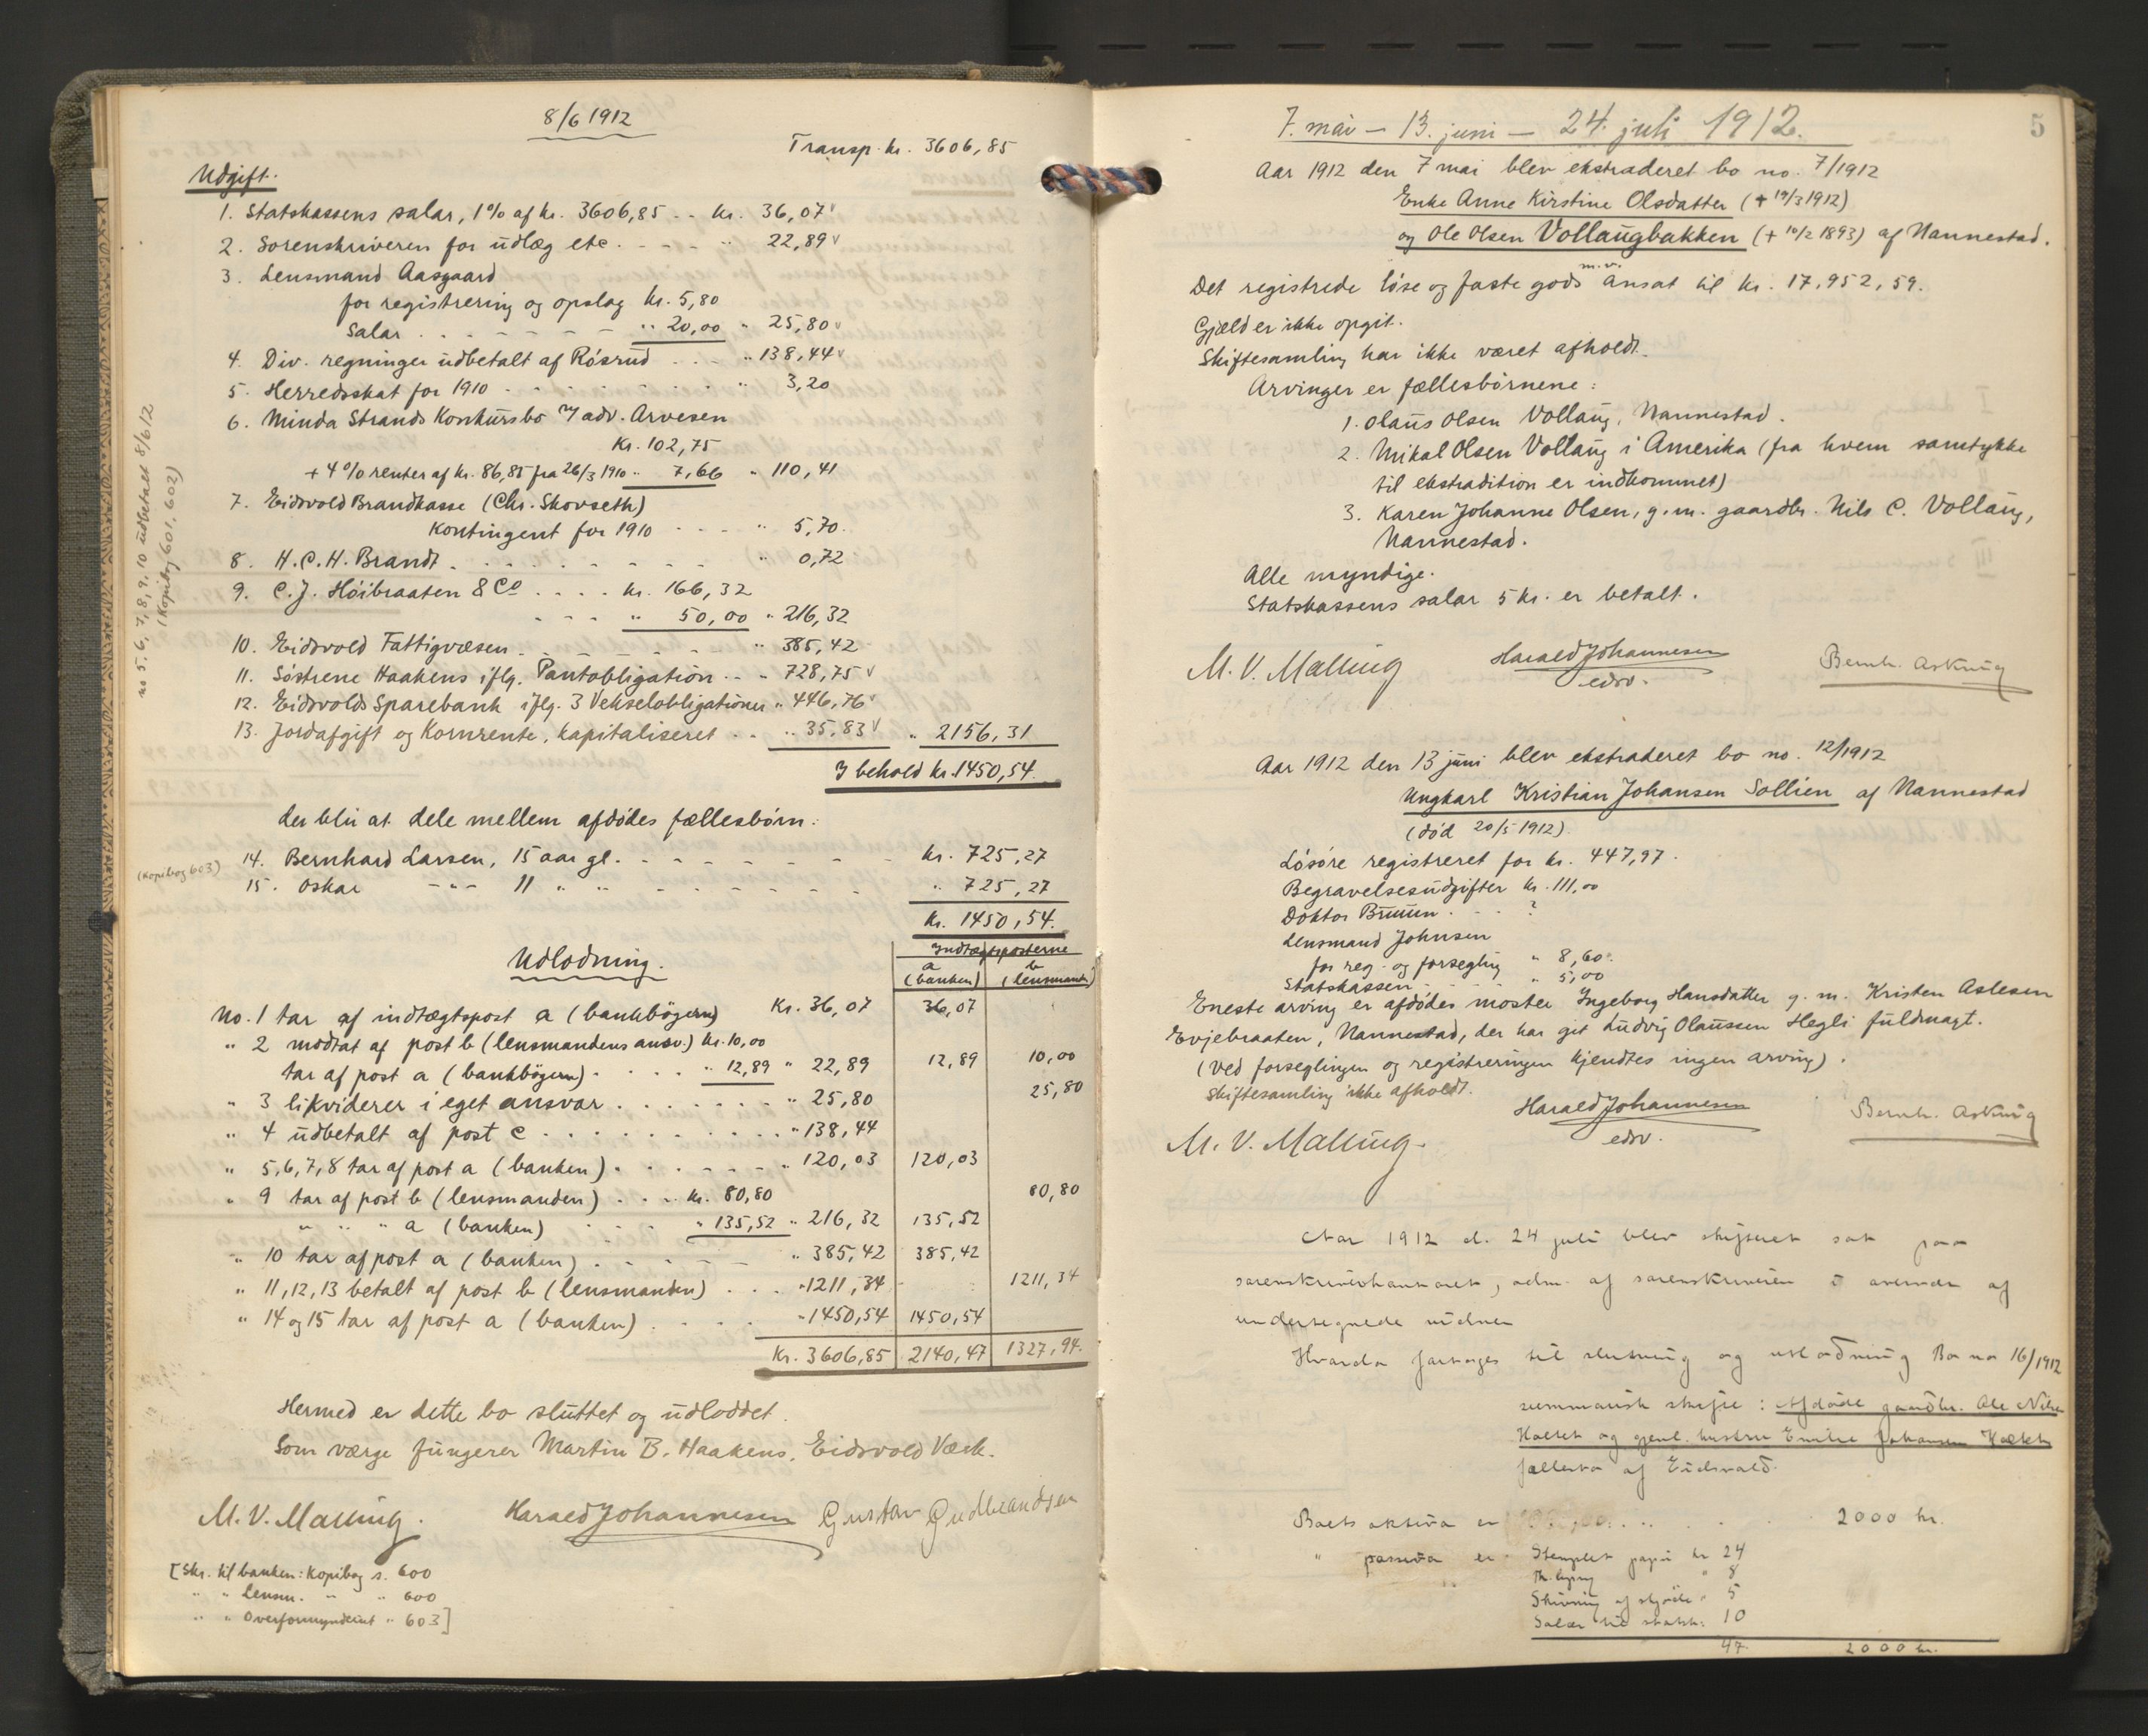 8/6 1912
Transp. kr. 3606,85
Udgift.
1. Statskassens salar, 1% af kr. 3606,85 .. kr. 36,07
2. Sorenskriveren for udlæg etc. - - - - " 22,89
3. Lensmand Aasgaard
for registrering og opslag kr. 5,80
Salar . . - - - - - " 20,00 " 25,80
4. Div. regninger udbetalt af Rösrud . . - " 138,44
5. Herredsskat for 1910 - . . . . . . . " 3,20
6. Minda Strands Konkursbo v/ adv. Arvesen
Kr. 102,75
+ 4% renter af kr. 86,85 fra 26/3 1910 " 7,66 " 110,41
7. Eidsvold Brandkasse (Chr. Skovseth)
Kontingent for 1910 - - - - " 5,70.
8. H.C.H. Brandt . . . . . - - - " 0,72
9. C.J. Höibraaten & Co . . . . kr. 166,32
- - - " 50,00 " 216,32
10. Eidsvold Fattigvæsen . - - - - - - " 385,42
11. Söstrene Haakens iflg. Pantobligation . . - " 728,75
12. Eidsvolds Sparebank iflg. 3 Vekselobligationer " 446,76
13. Jordafgift og Kornrente, kapitaliseret . . " 35,83 " 2156,31
I behold kr. 1450,54.
no 5, 6, 7, 8, 9, 10 udbetalt 8/6 12
(Kopibog 601, 602)
der blir at dele mellem afdödes fællesbörn:
(Kopibog 603)
14. Bernhard Larsen, 15 aar gl. - - - - - - - kr. 725,27
15. Oskar - " - 11 " " - - - - - - - " 725,27
Kr. 1450,54.
Udlodning.
Indtægtsposterne
a b
(banken) (lensmanden)
No. 1 tar af indtægtspost a (bankbögerne) Kr. 36,07 36,07
" 2 modtat af post b (lensmandens ansv.) kr. 10,00
tar af post a (bankbögerne) . . . . " 12,89 " 22,89 12,89 10,00
" 3 likviderer i eget ansvar . . . . . . . " 25,80 25,80
" 4 udbetalt af post c . . . . . . . . . . " 138,44
" 5, 6, 7, 8 tar af post a (banken) . . - - - - " 120,03 120,03
" 9 tar af post b (lensmanden) . . . kr. 80,80 80,80
" " " a (banken) . . . " 135,52 " 216,32 135,52
" 10 tar af post a (banken) . - - - - " 385,42 385,42
" 11, 12, 13 betalt af post b (lensmanden) . . . " 1211,34 1211,34
" 14 og 15 tar af post a (banken) . . . . " 1450,54 1450,54
Kr. 3606,85 2140,47 1327,94.
Hermed er dette bo sluttet og udloddet.
Som værge fungerer Martin B. Haakens, Eidsvold Værk.
M. V. Malling. Harald Johannesen Gustav Gudbrandsen
[Skr. til banken: Kopibog s. 600
" " lensm. " " 600
" " Overformynderiet " 603]
5
7. mai – 13. juni – 24. juli 1912.
Aar 1912 den 7 mai blev ekstraderet bo no. 7/1912
Enke Anne Kirstine Olsdatter (+ 19/3 1912)
og Ole Olsen Vollaugbakken (+ 10/2 1893) af Nannestad.
Det registrede löse og faste gods m.v. ansat til kr. 17.952,59.
Gjæld er ikke opgit.
Skiftesamling har ikke været afholdt.
Arvinger er fællesbörnene:
1. Olaus Olsen Vollaug, Nannestad.
2. Mikal Olsen Vollaug i Amerika (fra hvem samtykke
til ekstradition er indkommet)
3. Karen Johanne Olsen, g.m. gaardbr. Nils C. Vollaug,
Nannestad.
Alle myndige.
Statskassens salar 5 kr. er betalt.
M. V. Malling Harald Johannesen Bernh. Askvig
edsv.
Aar 1912 den 13 juni blev ekstraderet bo no. 12/1912
Ungkarl Kristian Johansen Sollien af Nannestad
(död 20/5 1912).
Lösöre registreret for kr. 447,97.
Begravelsesudgifter kr. 111,00
Doktor Bruun . - - ?
Lensmand Johnsen
for reg. og forsegling " 8,60.
Statskassen . . . . " 5,00
Eneste arving er afdödes moster Ingeborg Hansdatter g.m. Kristen Aslesen
Evjebraaten, Nannestad, der har git Ludvig Olaussen Hegli fuldmagt.
(Ved forseglingen og registreringen kjendtes ingen arving).
Skiftesamling ikke afholdt.
M. V. Malling. Harald Johannesen Bernh. Askvig
edsv.
Aar 1912 d. 24 juli blev skifteret sat paa
sorenskriverkontoret, adm. af sorenskriveren i overvær af
undertegnede vidner
Hvorda foretoges til slutning og utlodning Bo no 16/1912
summarisk skifte: Afdöde gaardbr. Ole Nilsen
Holtet og gjenl. hustru Emilie Johansen Holtet
fællesbo af Eidsvold.
Boets aktiva er . . . . 2000 kr.
" passiva er Stemplet papir kr 24
Th. lysning " 8
Skrivning af skjöde " 5
Salær til statsk. 10
47 2000 kr.